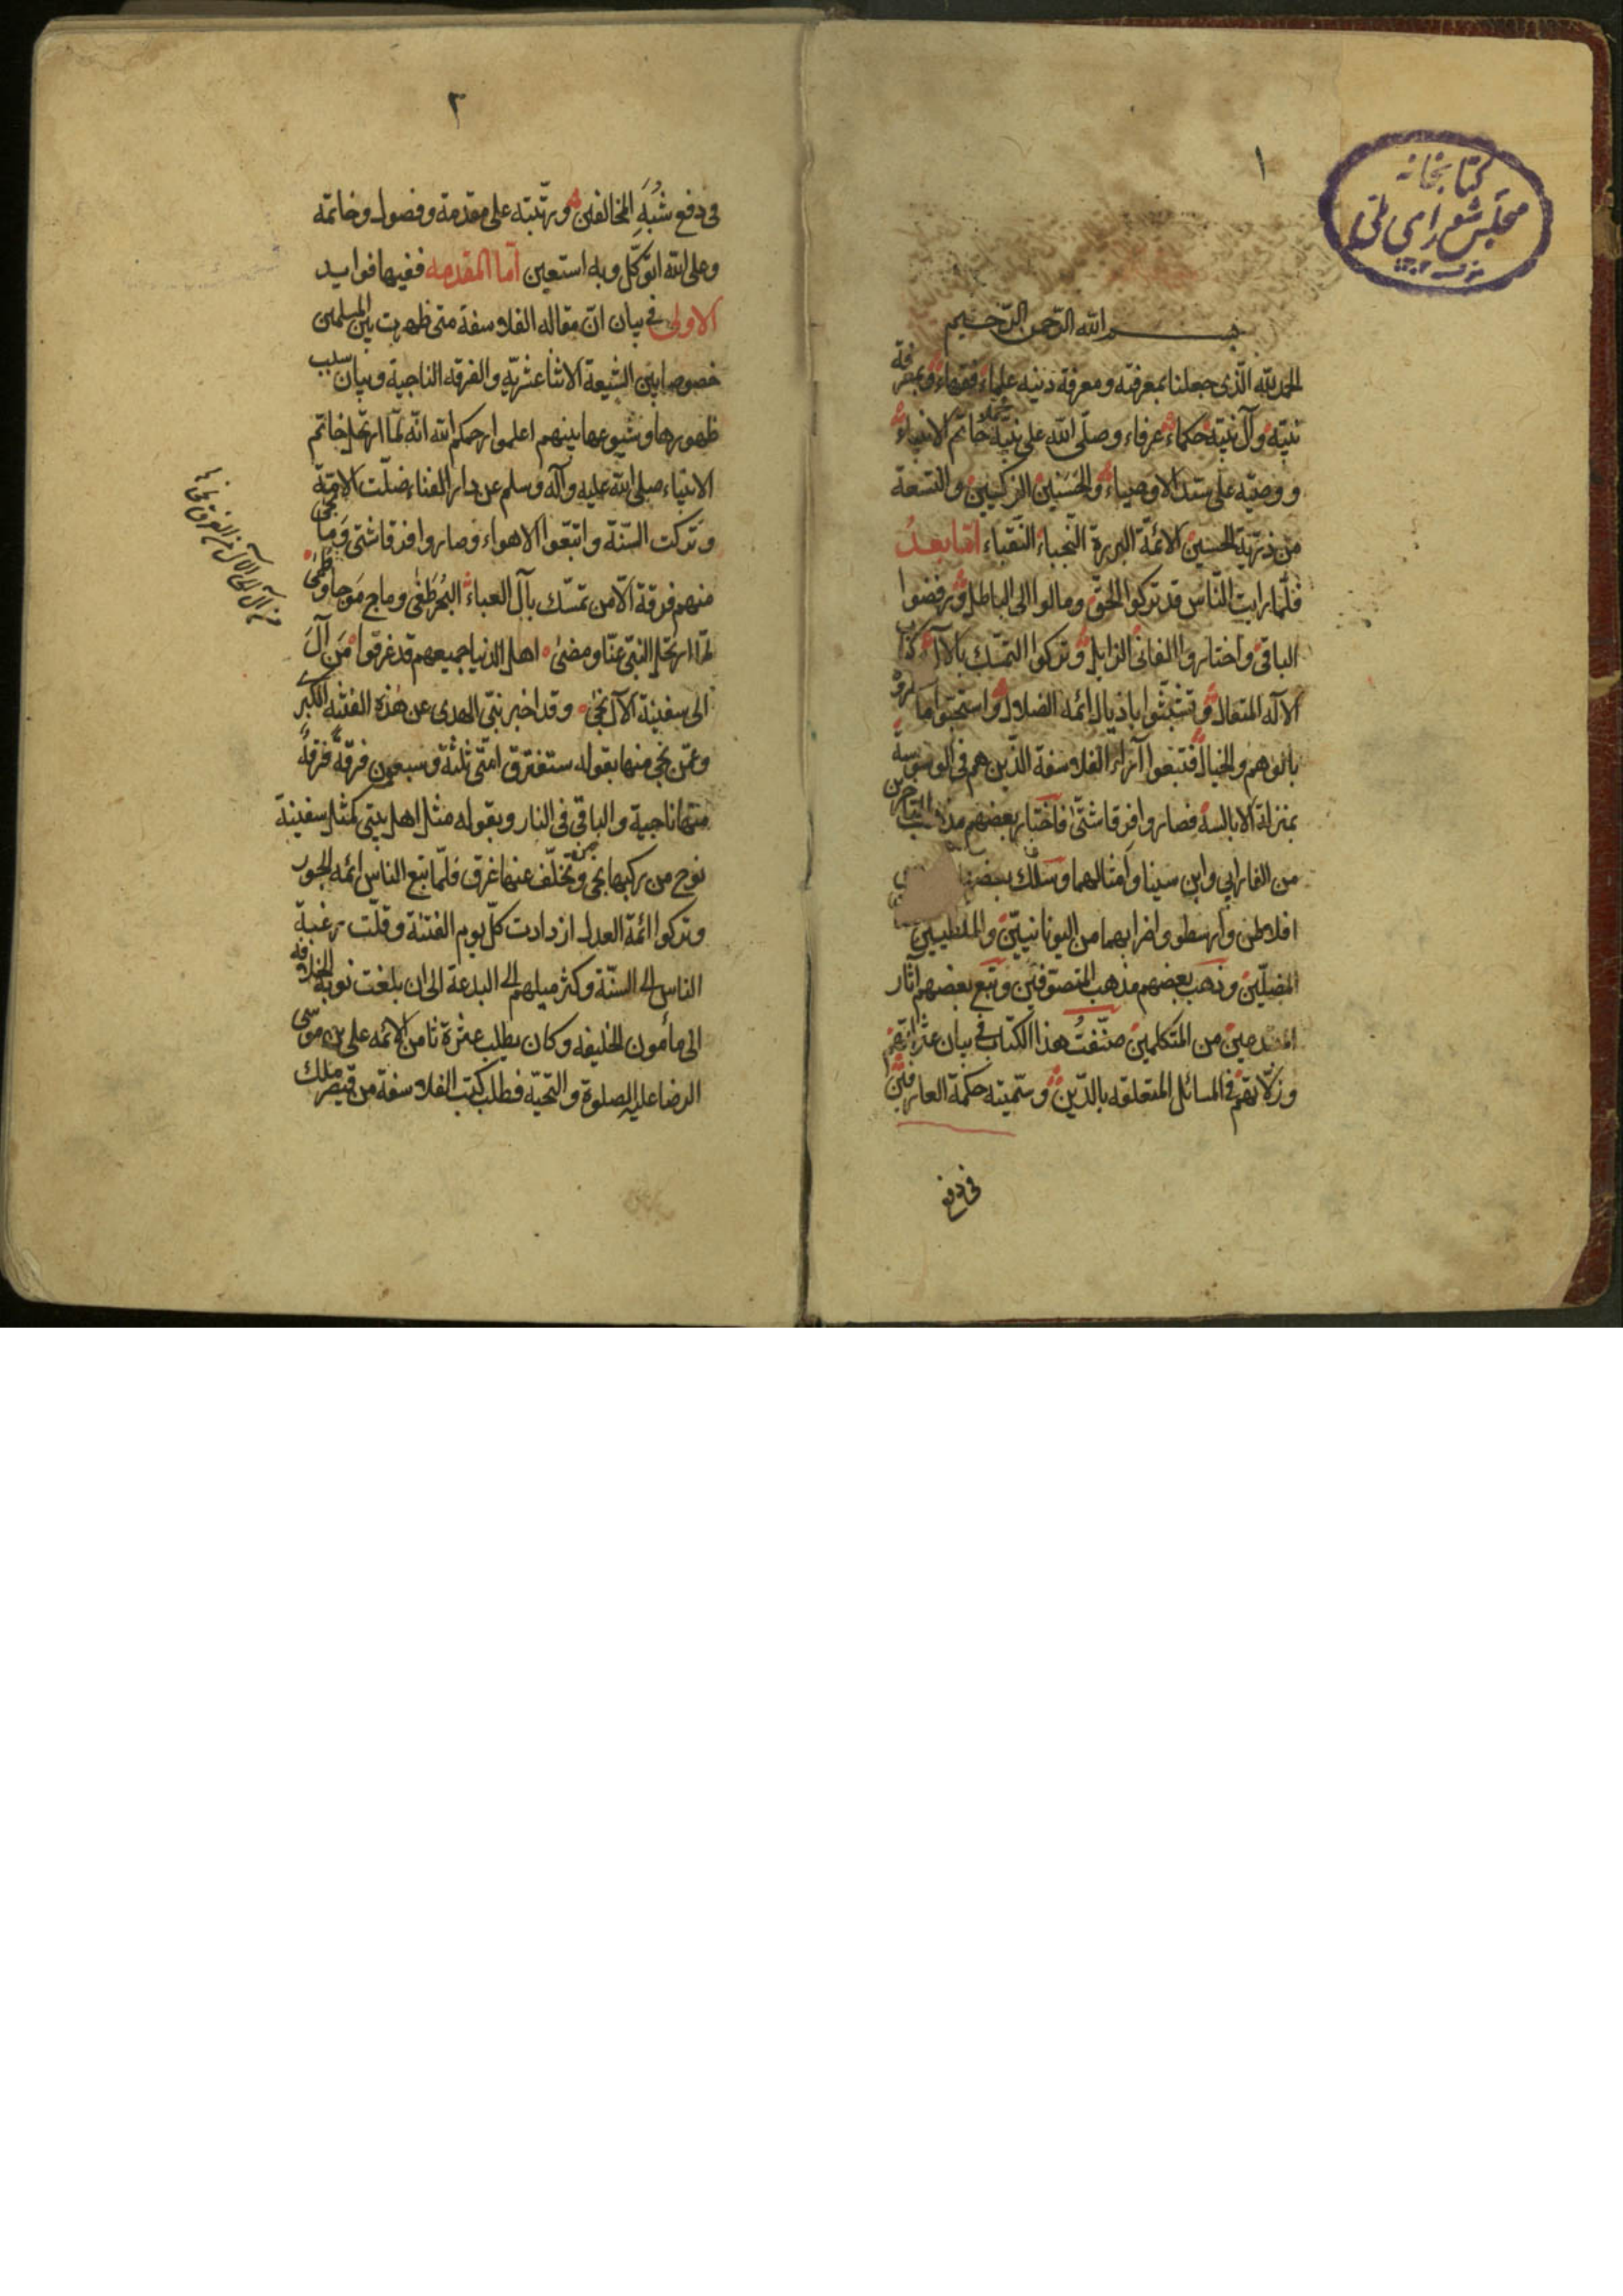 ١
كتابخانه
مجلس شوراى ملى
بسم الله الرّحمن الرّحيم
الحمد للّه الّذى جعلنا بمعرفته ومعرفة دينه علماء فقهاء وبمعرفة
نبيّه وآل نبيّه حكماء عرفاء وصلّى الله على نبيّه محمّد خاتم الانبياء
ووصيّه على سيّد الاوصياء والحسنين الزكيين والتسعة
من ذرّية الحسين الائمّة البررة النّجباء النّقباء امّا بعدُ
فلمّا رايت النّاس قد تركوا الحقّ ومالوا الى الباطل ورفضوا
الباقى واختاروا الفانى الزايل وتركوا التمسّك بالآل
الآله المتعال وتشبّثوا باذيال ائمه الضلال واستحبّوا
بالوهم والخيال فتبعوا آراء الفلاسفة الذّين هم فى الوسوسة
بمنزلة الابالسة فصاروا فرقا شتّى فاختار بعضهم مذهب المتأخرين
من الفارابي وابن سينا وامثالهما وسلك بعضهم
افلاطن وارسطو واضرابهما من اليونانييّن والملطيين
المضلّين وذهب بعضهم مذهب المتصوّفين وتبع بعضهم آثار
من المتكلمين صنّفتُ هذا الكتاب فى بيان عثراتهم
وزلّاتهم فى المسائل المتعلقه بالدّين وسمّيته حكمة العارفين
فى دفع
٢
فى دفع شُبَهِ المخالفين ورتّبته على مقدمة وفصول وخاتمه
وعلى الله اتوكّل وبه استعين امّا المقدمه ففيها فوايد
الاولى فى بيان انّ مقاله الفلاسفة متى ظهرت بين المسلمين
خصوصا بين الشيعة الاثناعشريّه والفرقه الناجية وبيان سبب
ظهورها وشيوعها بينهم اعلموا رحمكم الله انّه لمّا ارتحل خاتم
الانبياء صلى الله عليه وآله وسلم عن دار الفناء ضلّت الامّة
وتركت السّنّة واتبّعوا الاهواء وصاروا فرقا شتى وَما نجى
منهم فرقة الّا من تمسّك بآل العباء البُحر طَغى وماج مَوجا وطَمى
لمّا ارتحل النبىّ عنّا ومضى اهل الدنيا جميعهم قد غرقوا مَن آلَ
الى سفينة الآل نجى وقد اخبر نبىّ الهدى عن هذه الفتنه الكبرى
وعمّن نجى منها بقوله ستفترق امّتى ثلثة وسبعون فرقةً فرقةٌ
منها ناجية والباقى فى النار وبقوله مثل اهل بيتى كمثل سفينة
نوح من ركبها نجى ومن تخلّف عنها غرق فلمّا تبع الناس ائمه الجور
وتركوا ائمة العدل ازدادت كلّ يوم الفتنة وقلّت رغبة
الناس الى السنّة وكثر ميلهم الى البدعة الى ان بلغت نوبة الخلافه
الى مأمون الخليفه وكان يطلب عثرة ثامن الائمه على بن موسى
الرضا عليه الصلوة والتحيّه فطلب كتب الفلاسفة من قيصر ملك